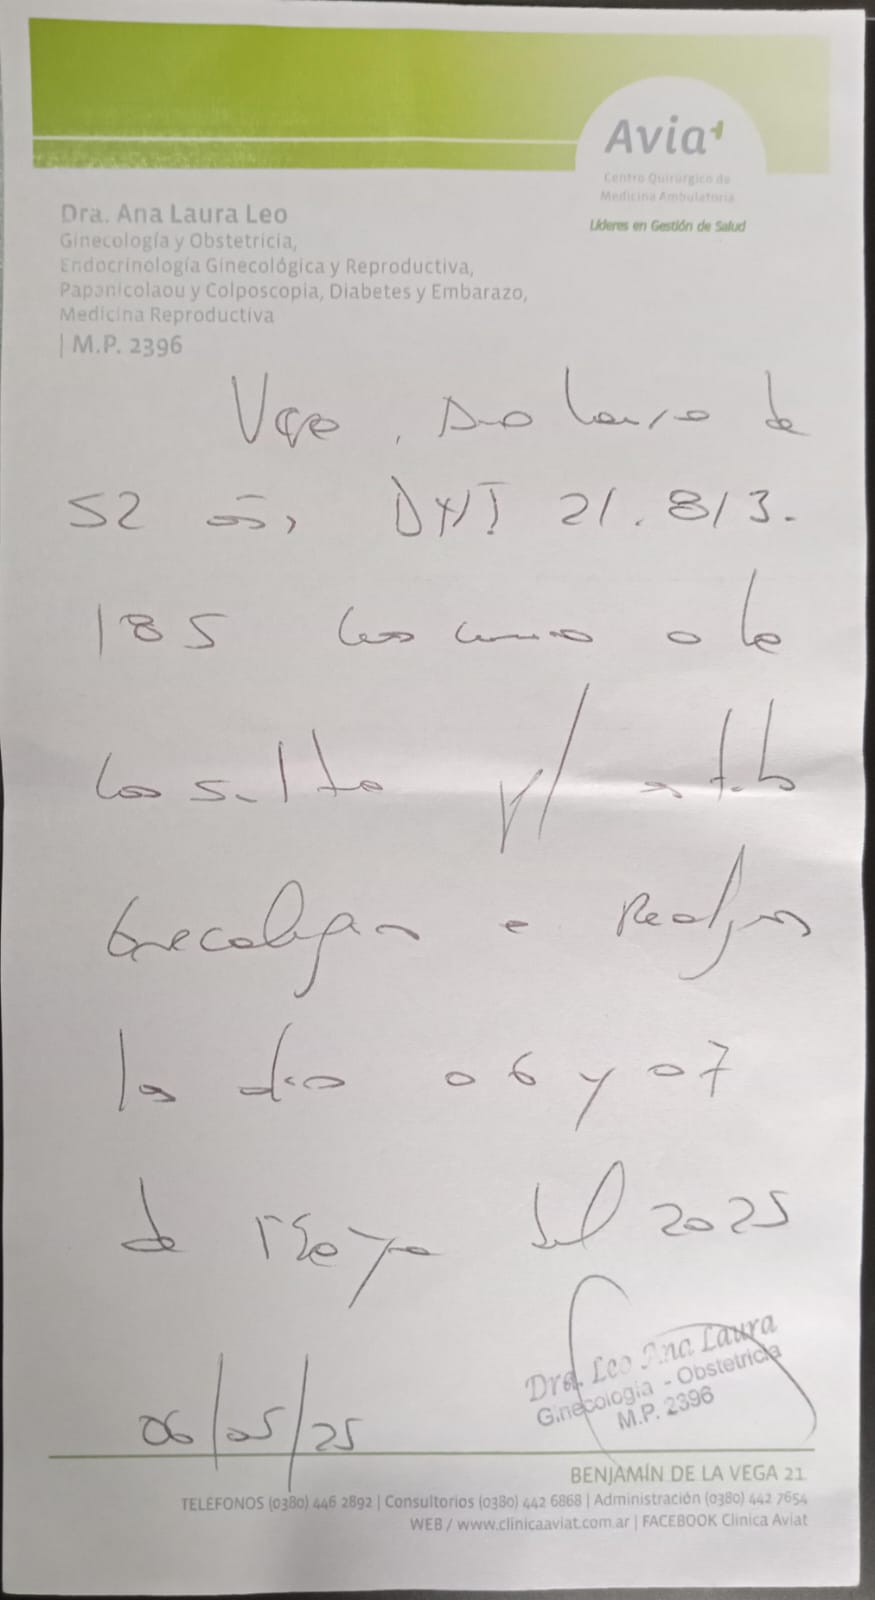 Avia
Centro Quirúrgico de
Medicina Ambulatoria
Líderes en Gestión de Salud
Dra. Ana Laura Leo
Ginecología y Obstetricia,
Endocrinología Ginecológica y Reproductiva,
Papanicolaou y Colposcopia, Diabetes y Embarazo,
Medicina Reproductiva
| M.P. 2396
de
52 DNI 21.813.
185 a la
consulta p/
ginecologico a realizar
los dia 06 y 07
de Mayo del 2025
06/05/25
Dra. Leo Ana Laura
Ginecología - Obstetricia
M.P. 2396
BENJAMÍN DE LA VEGA 21
TELÉFONOS (0380) 446 2892 | Consultorios (0380) 442 6868 | Administración (0380) 442 7654
WEB / www.clinicaaviat.com.ar | FACEBOOK Clinica Aviat